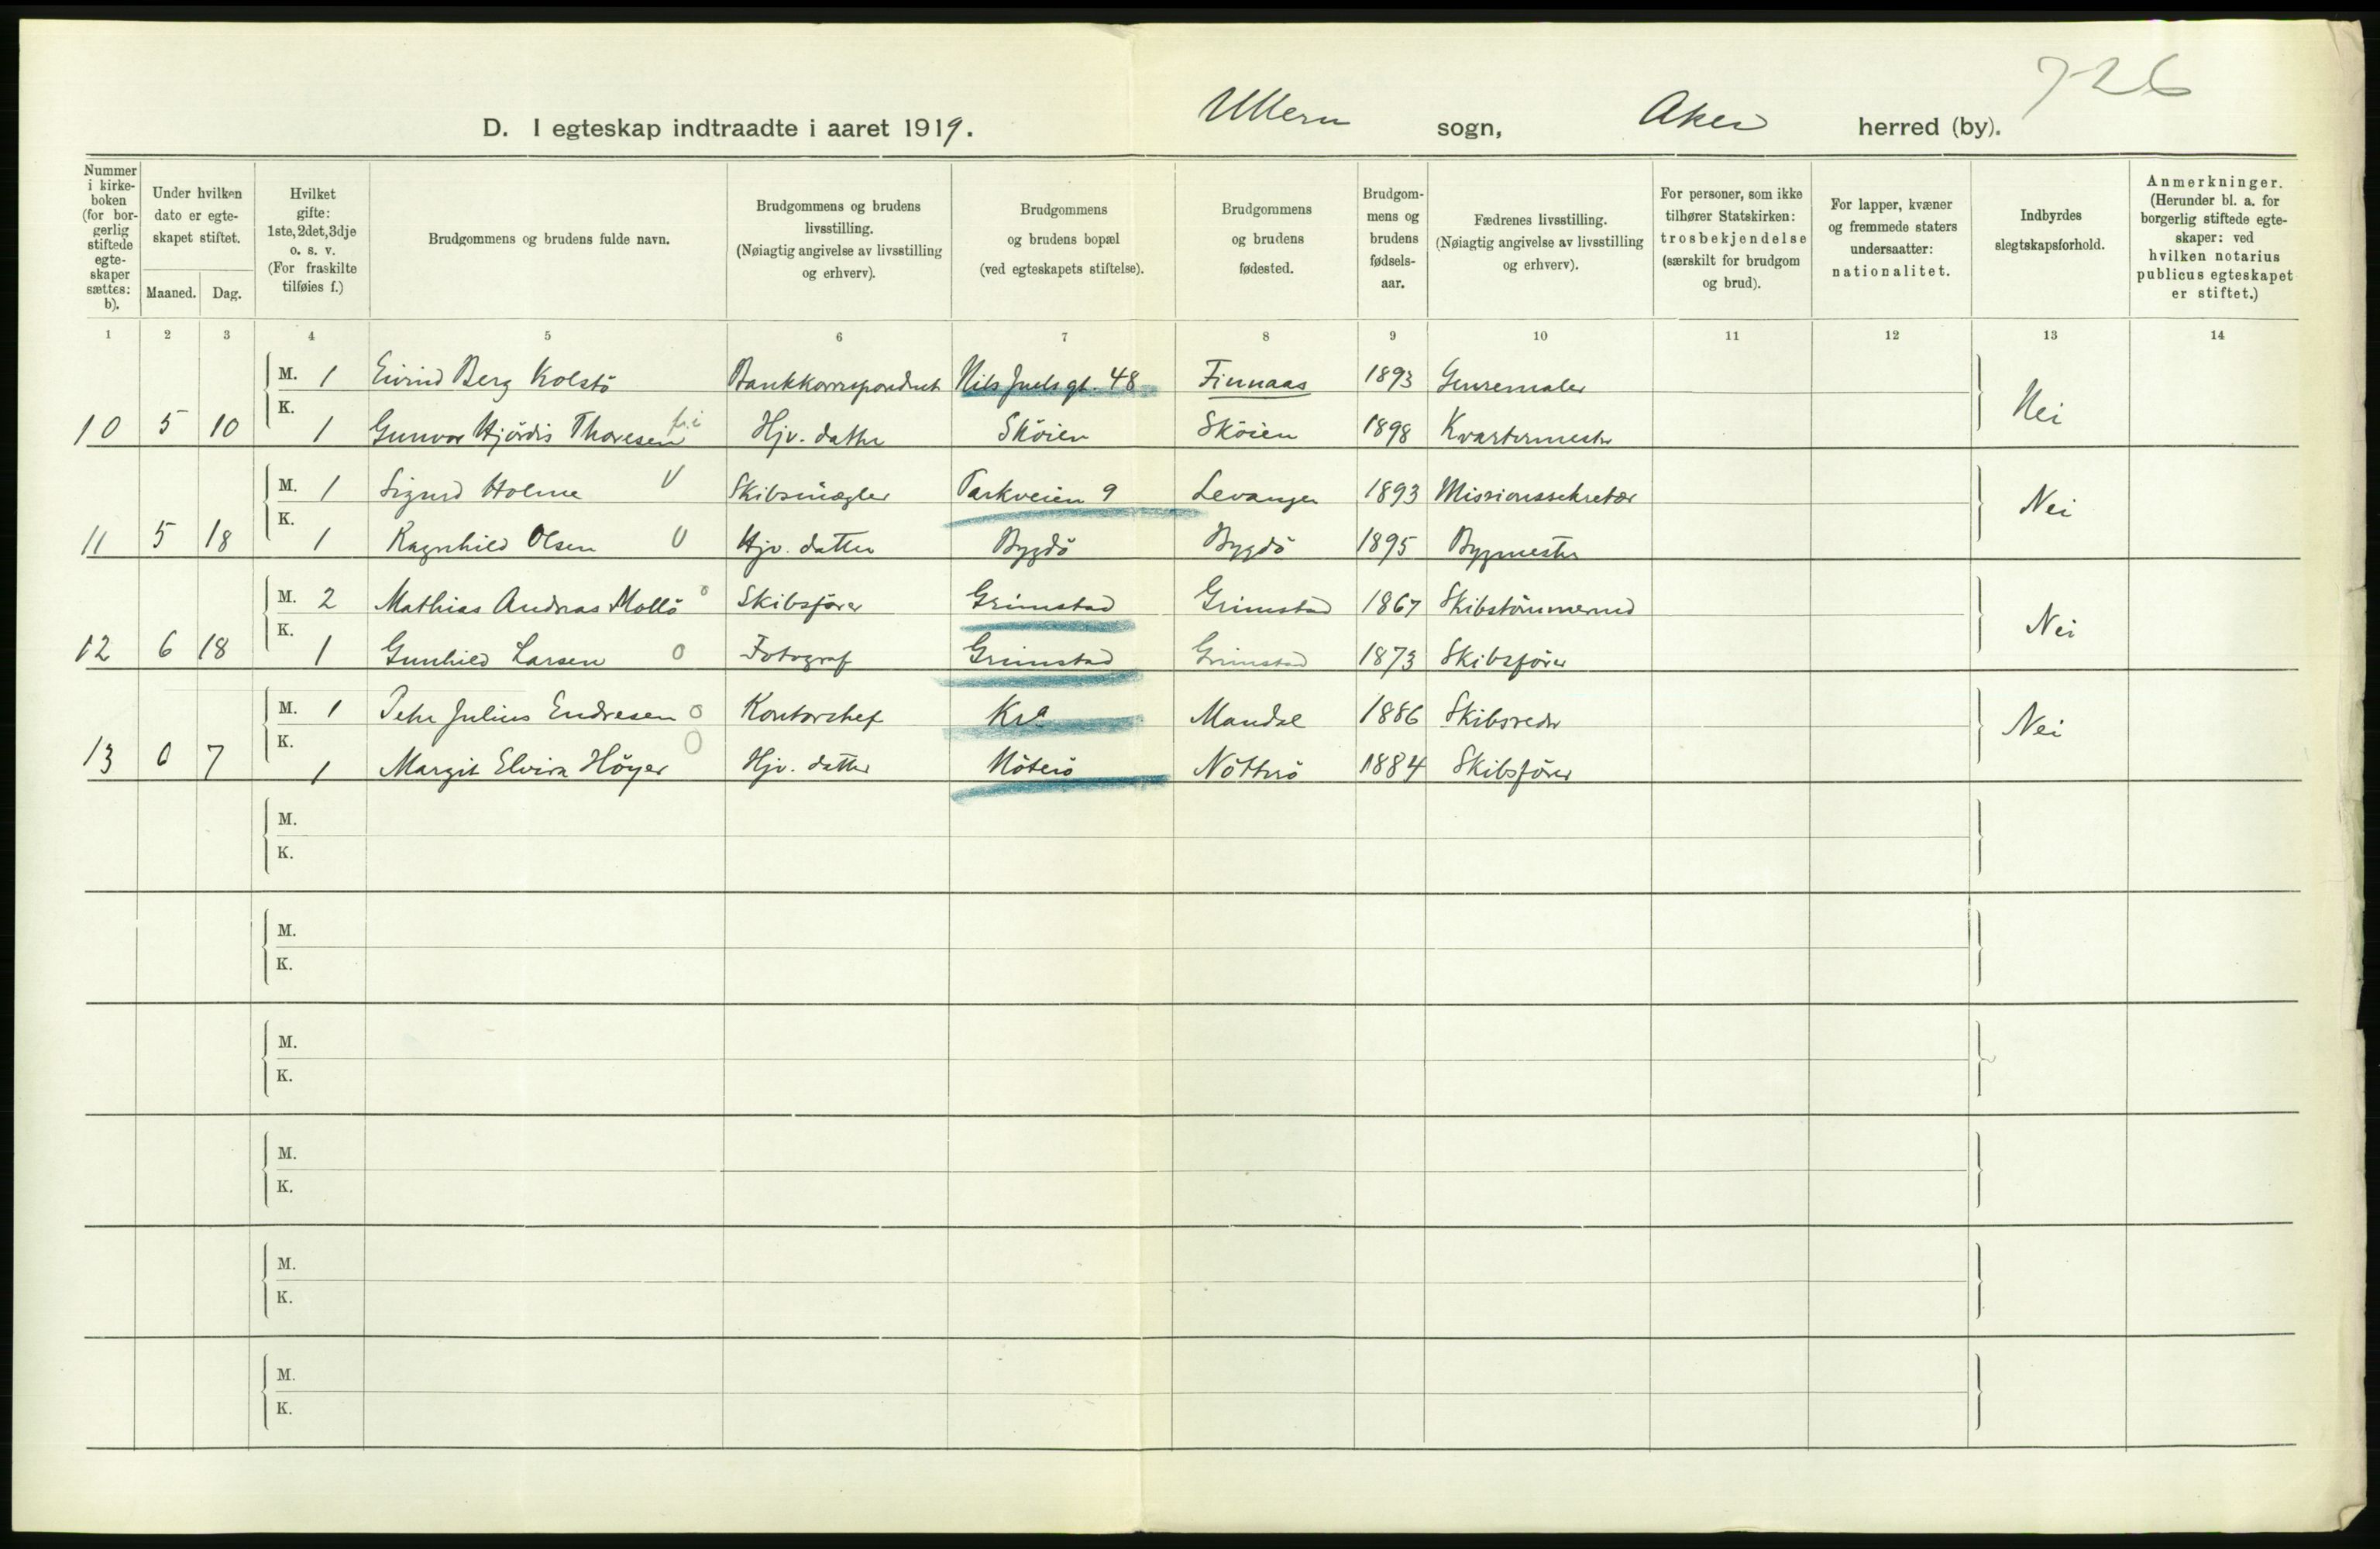 726
D. I egteskap indtraadte i aaret 1919. Ullern sogn, Aker herred (by).
Nummer i kirke-boken (for bor-gerlig stiftede egte-skaper sættes: b).
Under hvilken dato er egte-skapet stiftet.
Maaned. Dag.
Hvilket gifte: 1ste, 2det, 3dje o. s. v. (For fraskilte tilføies f.)
Brudgommens og brudens fulde navn.
Brudgommens og brudens livsstilling. (Nøiagtig angivelse av livsstilling og erhverv).
Brudgommens og brudens bopæl (ved egteskapets stiftelse).
Brudgommens og brudens fødested.
Brudgom-mens og brudens fødsels-aar.
Fædrenes livsstilling. (Nøiagtig angivelse av livsstilling og erhverv).
For personer, som ikke tilhører Statskirken: trosbekjendelse (særskilt for brudgom og brud).
For lapper, kvæner og fremmede staters undersaatter: nationalitet.
Indbyrdes slegtskapsforhold.
Anmerkninger. (Herunder bl. a. for borgerlig stiftede egte-skaper: ved hvilken notarius publicus egteskapet er stiftet.)
1 2 3 4 5 6 7 8 9 10 11 12 13 14
M. 1 Eivind Berg Kolstö Bankkorrespondent Nils Juels gt. 48 Finnaas 1893 Genremaler
10 5 10 K. 1 Gunvor Hjördis Thoresen Hjv. datter Sköien Sköien 1898 Kvartermester Nei
M. 1 Sigurd Holme Skibsmægler Parkveien 9 Levanger 1893 Missionssekretær
11 5 18 K. 1 Ragnhild Olsen Hjv. datter Bygdö Bygdö 1895 Bygmester Nei
M. 2 Mathias Andreas Mollö Skibsfører Grimstad Grimstad 1867 Skibstömmermd
12 6 18 K. 1 Gunhild Larsen Fotograf Grimstad Grimstad 1873 Skibsfører Nei
M. 1 Peter Julius Endresen Kontorchef Kra Mandal 1886 Skibsreder
13 6 7 K. 1 Margit Elvira Höyer Hjv. datter Nöterö Nötterö 1884 Skibsfører Nei
M.
K.
M.
K.
M.
K.
M.
K.
M.
K.
M.
K.